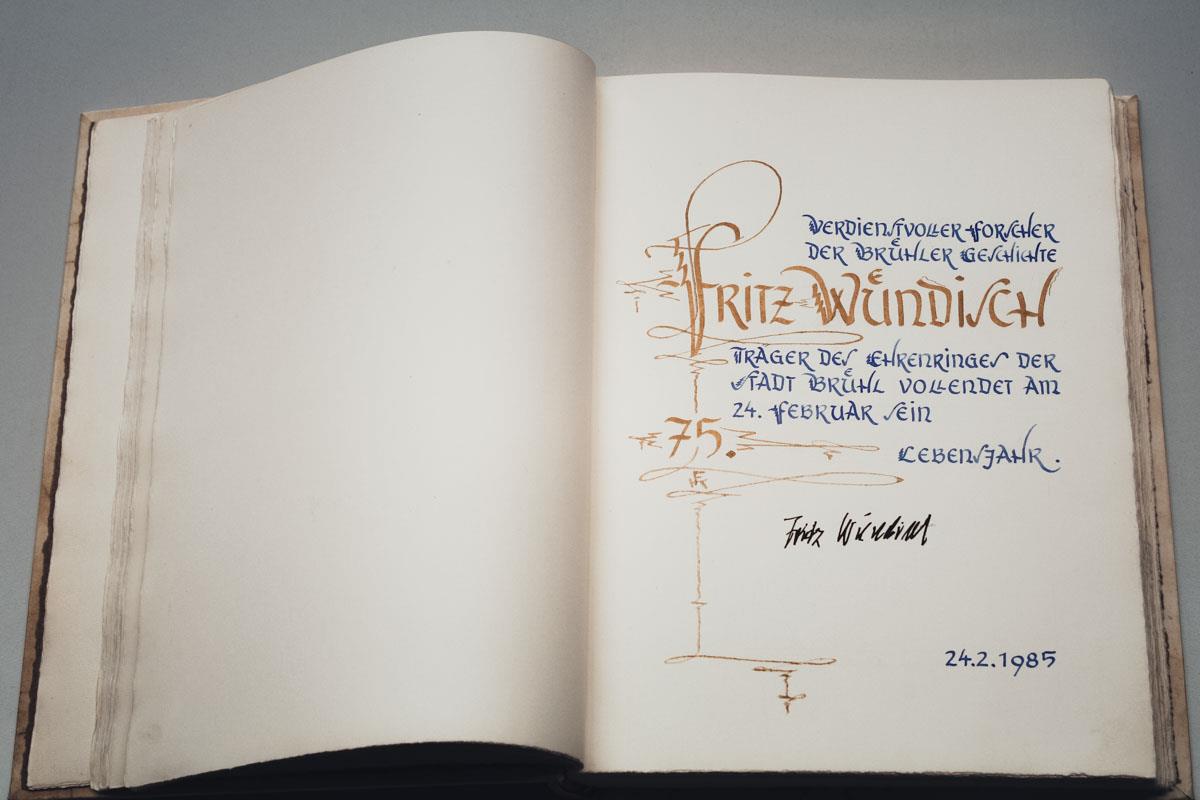 VERDIENSTVOLLER FORSCHER
DER BRÜHLER GESCHICHTE
FRITZ WÜNDISCH
TRÄGER DES EHRENRINGES DER
STADT BRÜHL VOLLENDET AM
24. FEBRUAR SEIN
75.
LEBENSJAHR.
Fritz Wündisch
24.2.1985